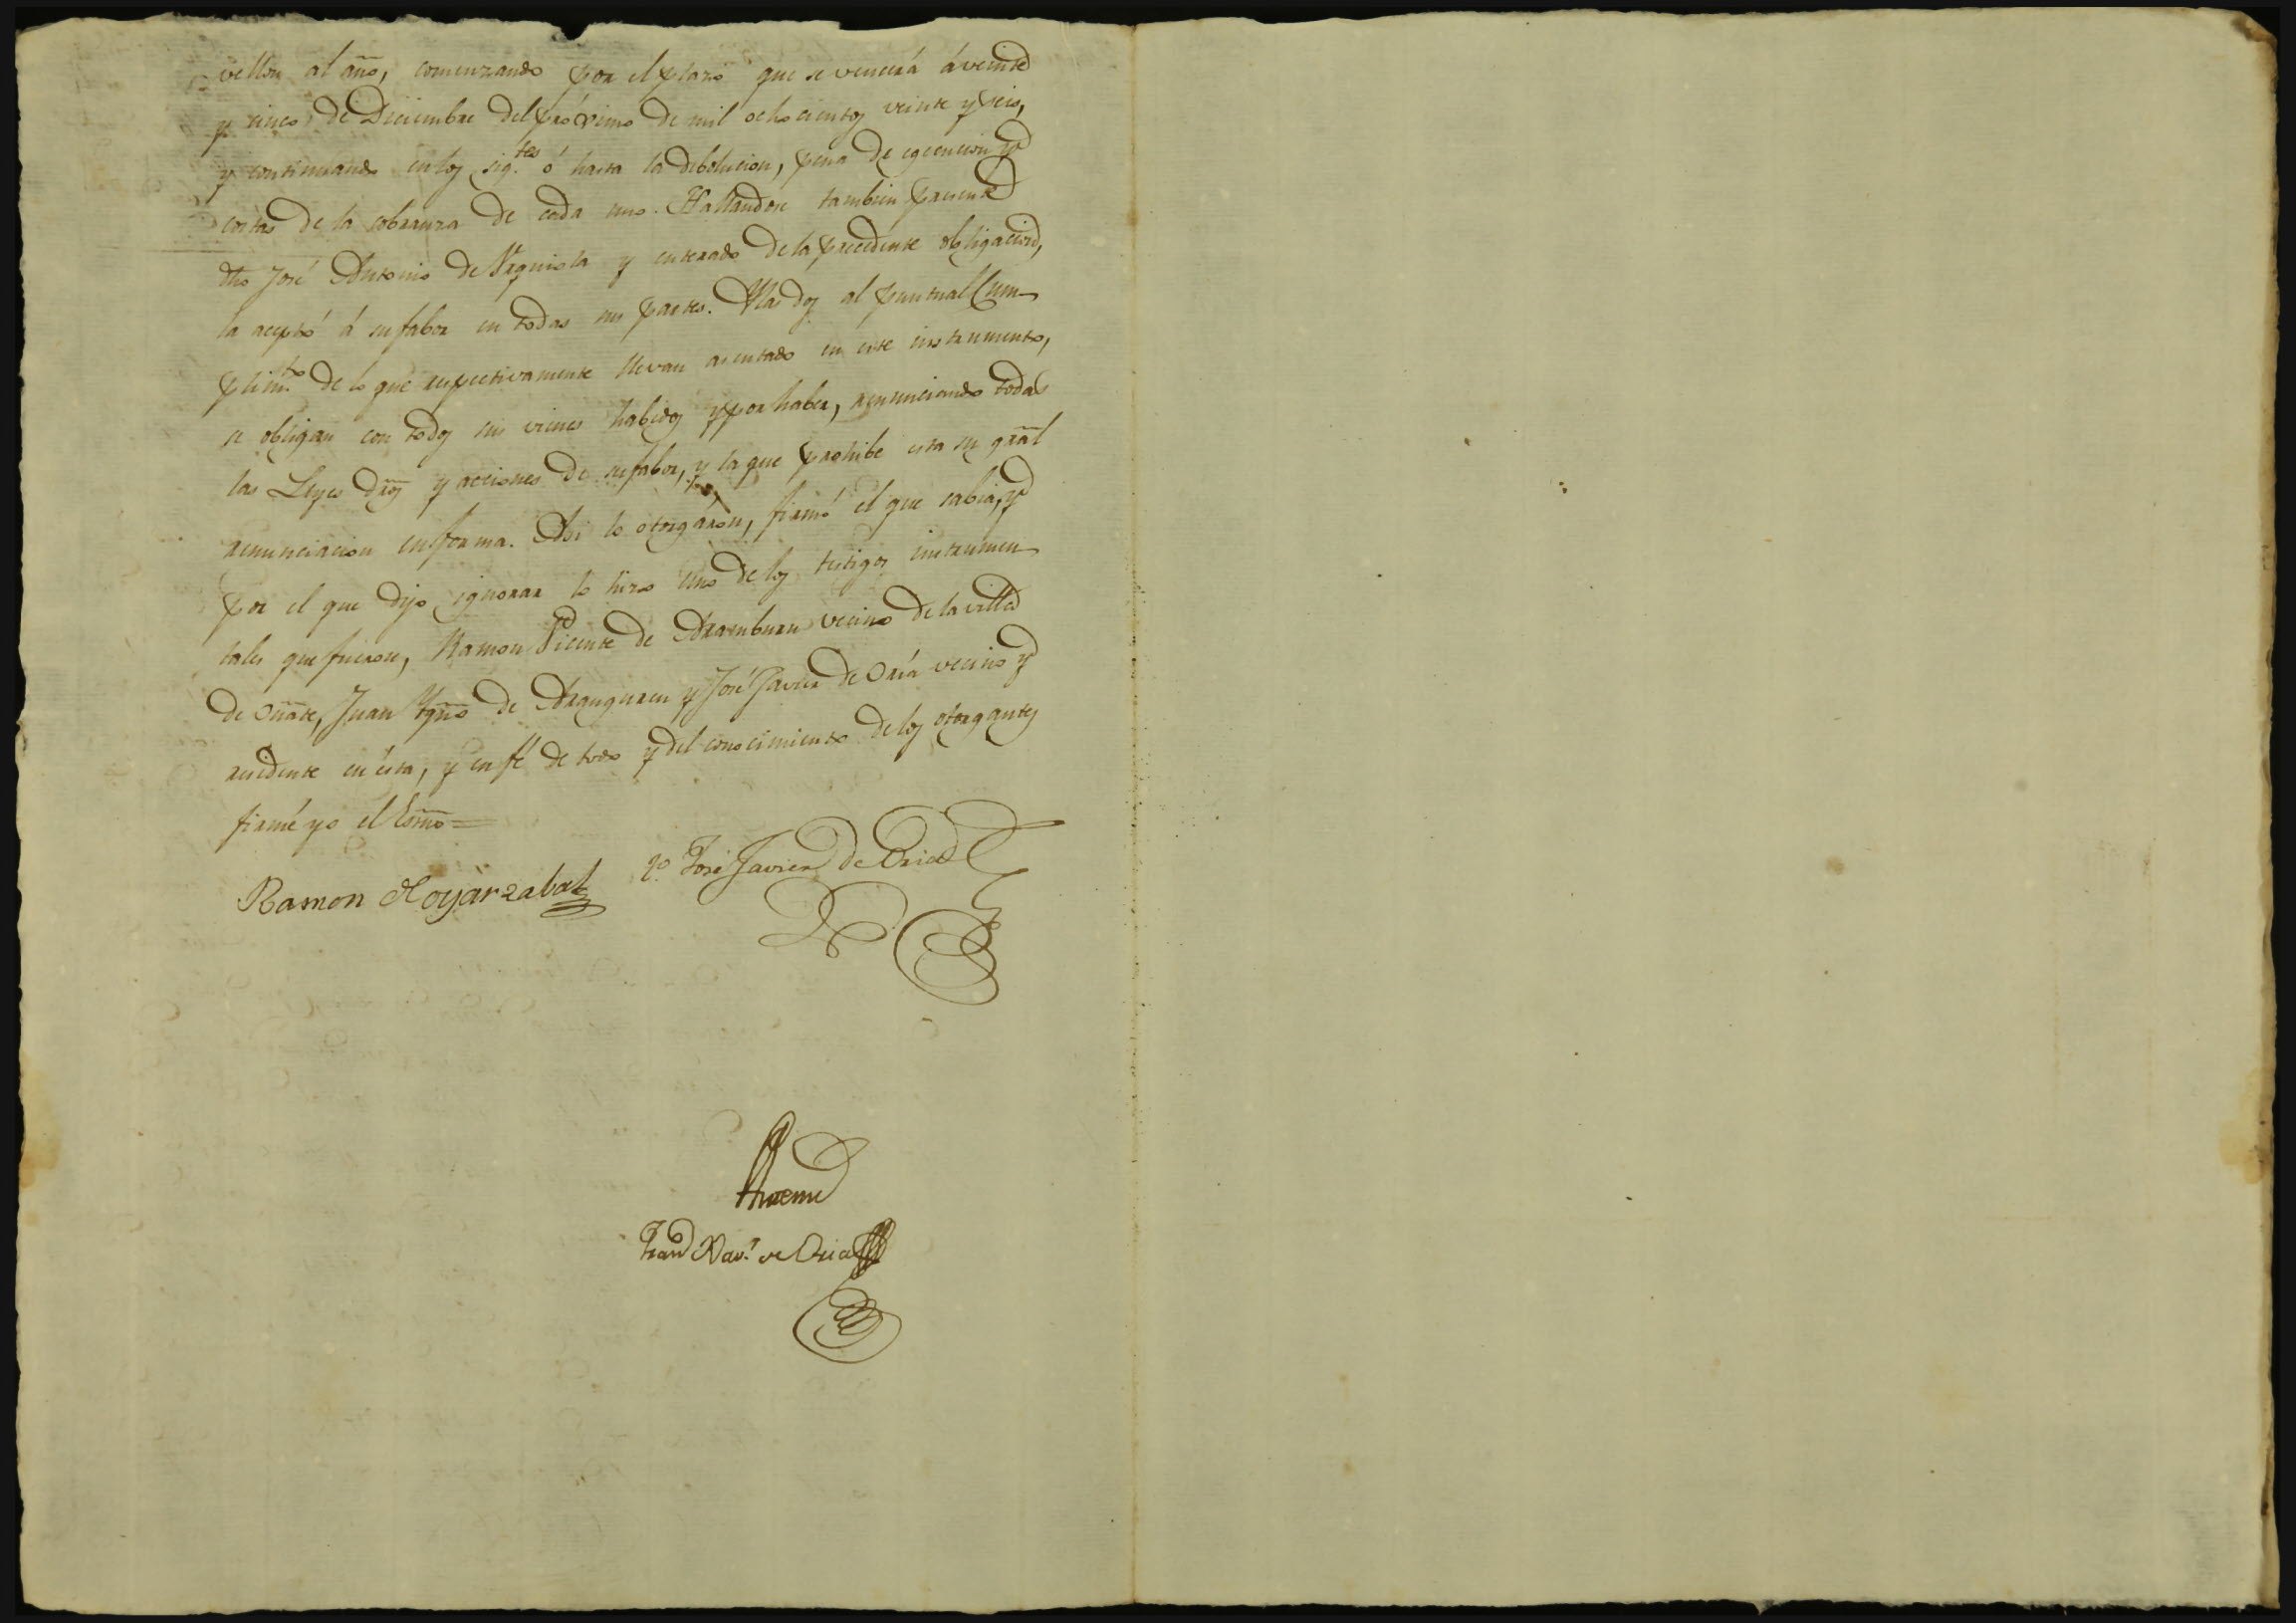 vellon al año, comenzando por el plazo que se vencerá á veinte
y cinco de Diciembre del próximo de mil ochocientos veinte y seis,
y continuando en los sig.tes ó hasta la debolucion, pena de egecucion y
costas de la cobranza de cada uno. Hallandose tambien presente
dho José Antonio de Urquiola y enterado de la precedente obligacion,
la aceptó á su fabor en todas sus partes. Y los dos al puntual cum-
plim.to de lo que respectivamente llevan asentado en este instrumento,
se obligan con todos sus vienes habidos y por haber, renunciando todas
las Leyes dros y acciones de su fabor, y la que prohibe esta su gral
renunciacion en forma. Asi lo otorgáron, firmó el que sabia, y
por el que dijo ignorar lo hizo uno de los testigos instrumen-
tales que fueron, Ramon Vicente de Aramburu vecino de la villa
de Oñate, Juan Ygnº de Aranguren y José Javier de Oria vecino y
residente en ésta, y en fé de todo y del conocimiento de los otorgantes
firmé yo el Esnno=
Ramon Ooyarzabal tº José Javier de Oria
Ante mi
Juan Xav.r de Oria